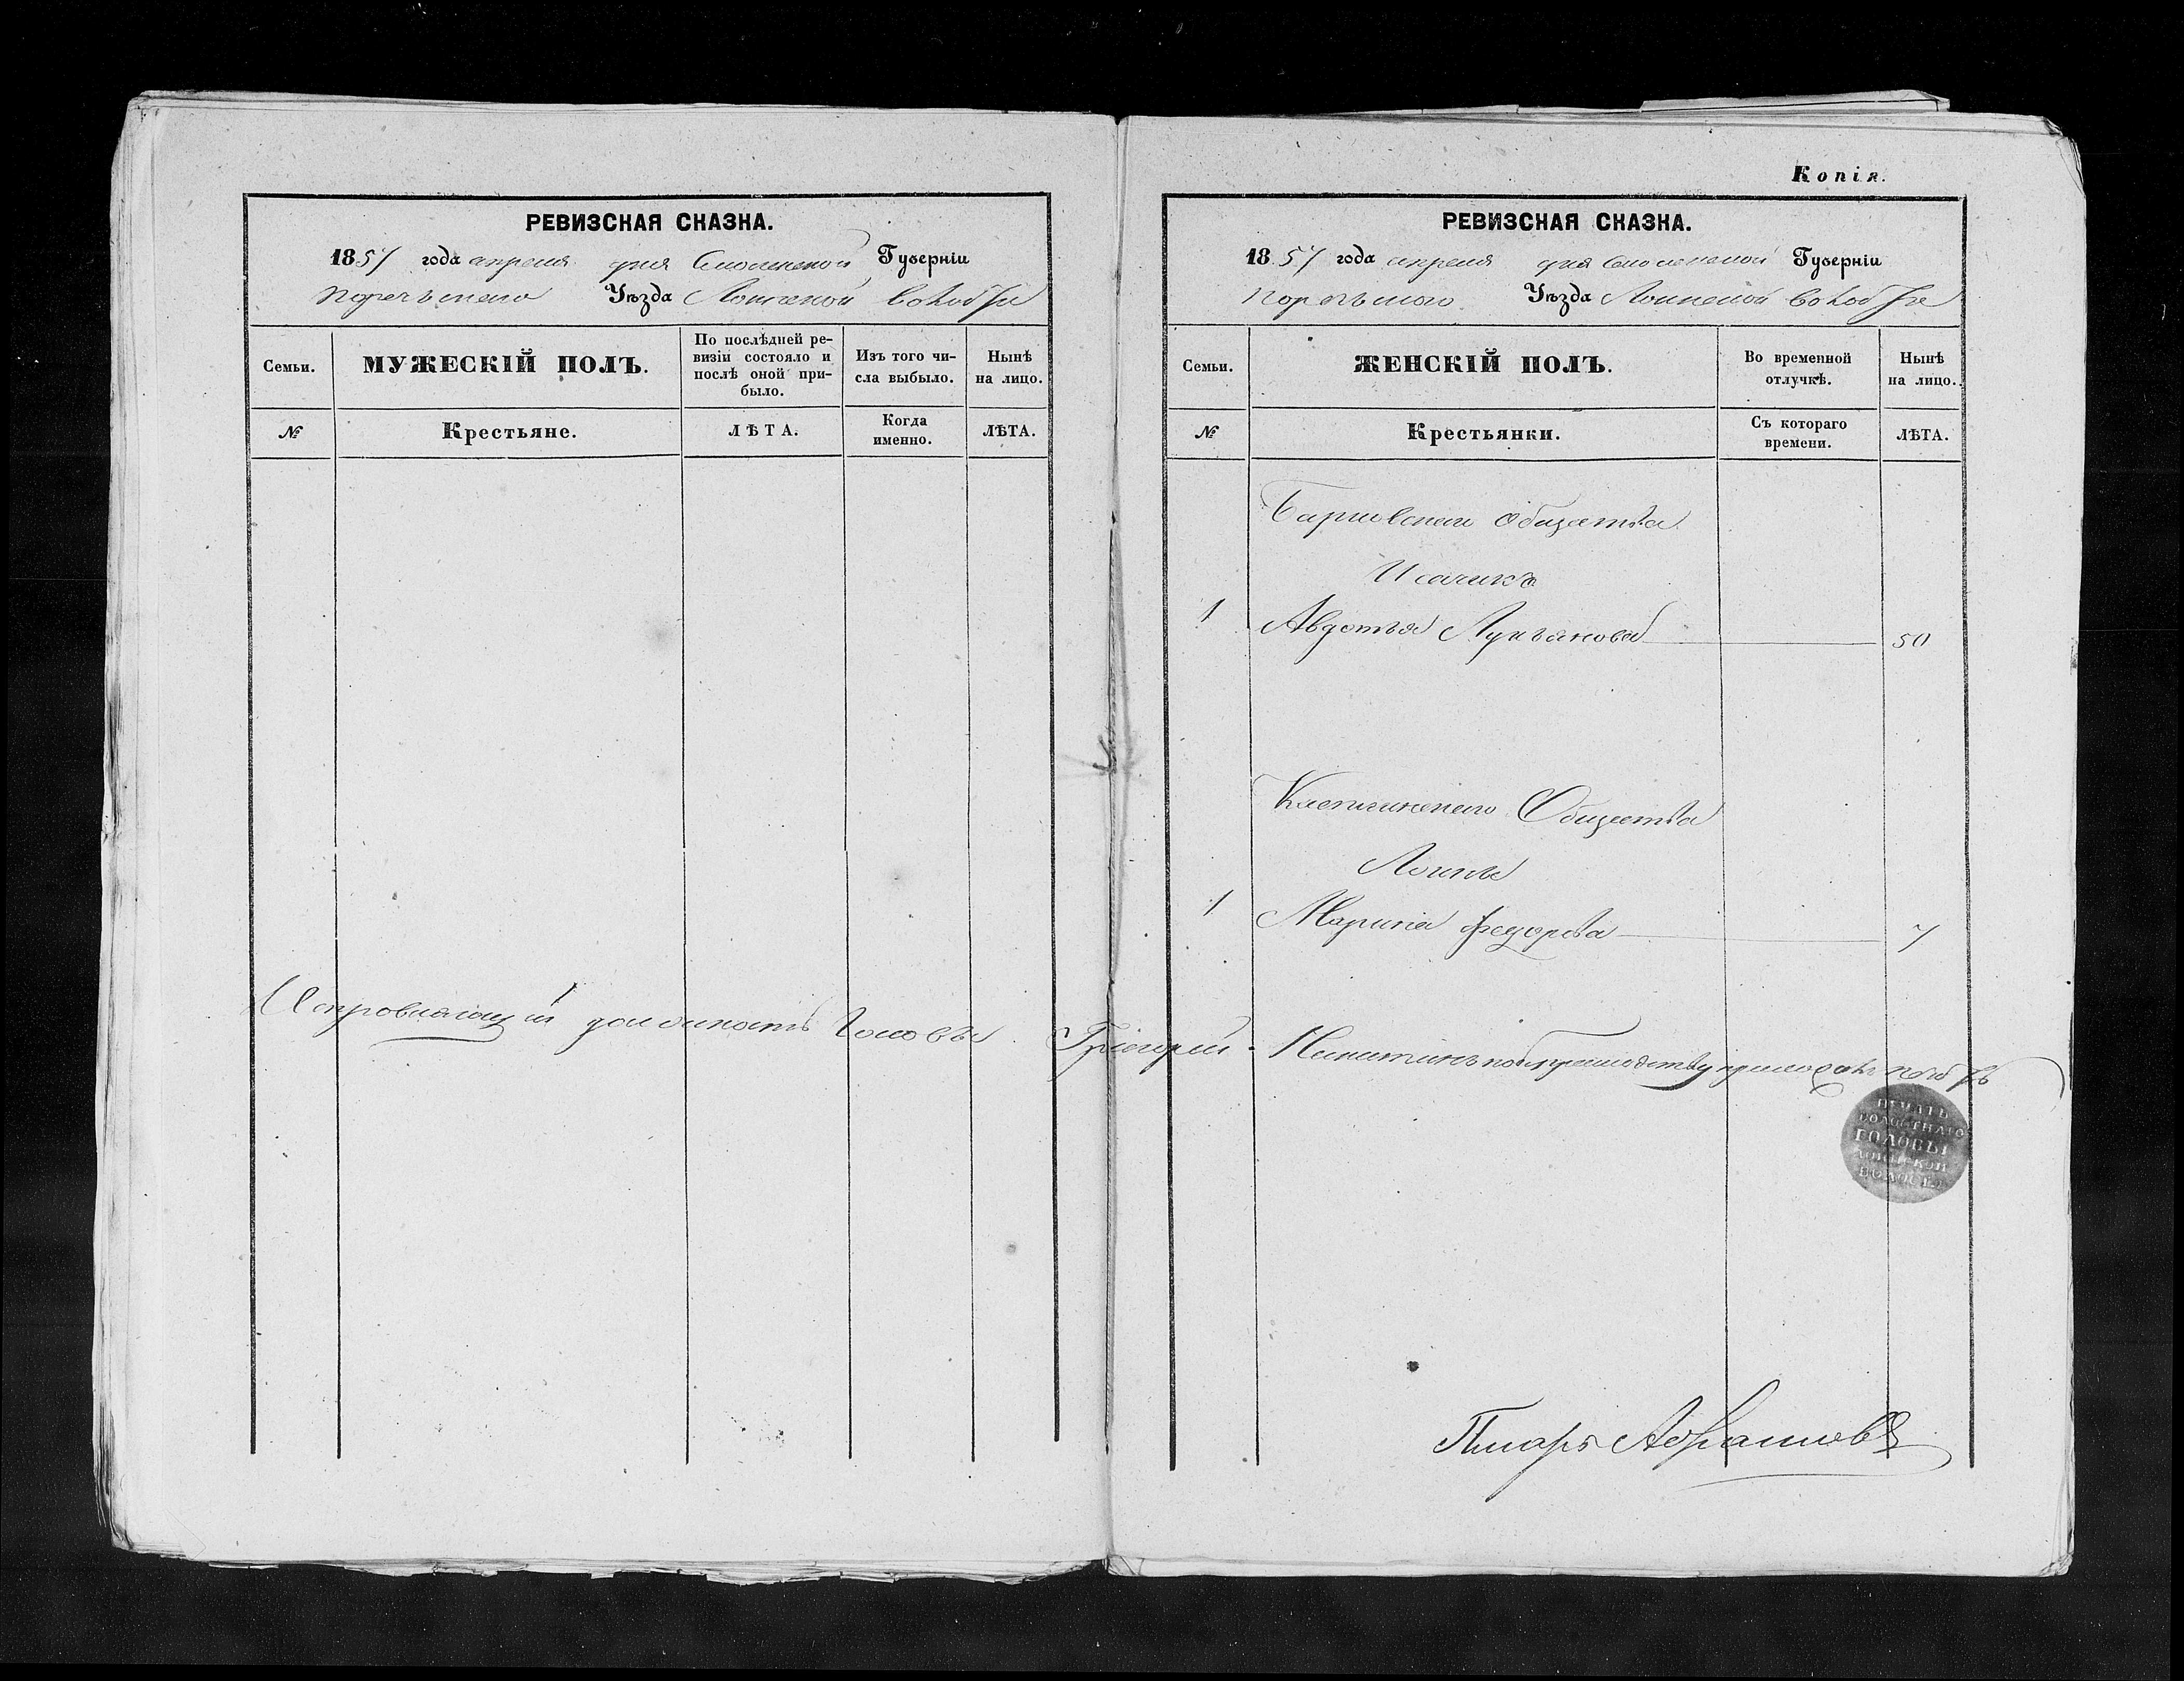 РЕВИЗСКАЯ СКАЗКА.
1857 года апреля дня Смоленской Губерніи
Поречьского Уѣзда Лоинской
Семьи.
МУЖЕСКІЙ ПОЛЪ.
По послѣдней ре-
визіи состояло и
послѣ оной при-
было.
Изъ того чи-
сла выбыло.
Нынѣ
на лицо.
№
Крестьяне.
ЛѢТА.
Когда
именно.
ЛѢТА.
Копія.
РЕВИЗСКАЯ СКАЗКА.
1857 года апреля дня Смоленской Губерніи
Поречьского Уѣзда Лоинской
Семьи.
ЖЕНСКІЙ ПОЛЪ.
Во временной
отлучкѣ.
Нынѣ
на лицо.
№
Крестьянки.
Съ котораго
времени.
ЛѢТА.
Общества
1 Авдотья Лукьянова 50
Общества
1 Марина Федорова 7
Исправляющій должность Головы Григорій Никитинъ
ПЕЧАТЬ
ВОЛОСТНАГО
ГОЛОВЫ
ЛОИНСКОЙ
Писарь Абрамовъ